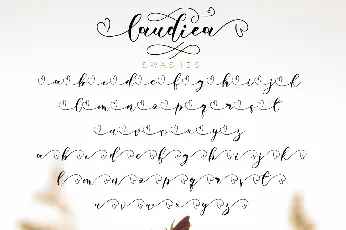 laudiea
SWASHES
a b c d e f g h i j k
l m n o p q r s t
u v w x y z
a b c d e f g h i j k
l m n o p q r s t
u v w x y z